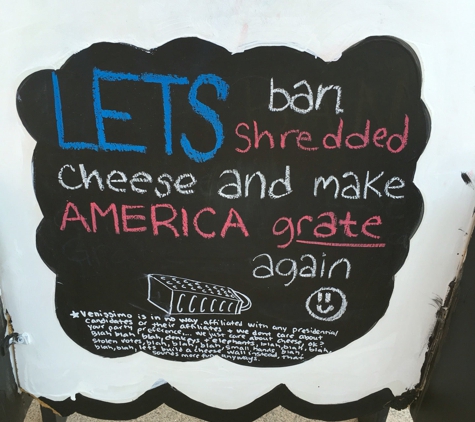 LETS ban
shredded
cheese and make
AMERICA grate
again
*Venissimo is in no way affiliated with any presidential
candidates or their affiliates + we dont care about
your party preference... we just care about cheese, ok?
Blah blah blah, donkeys + elephants, blah, blah,
stolen votes, blah, blah, blah, small hands, blah,
blah, blah, lets build a cheese wall instead, that
sounds more fun anyways.